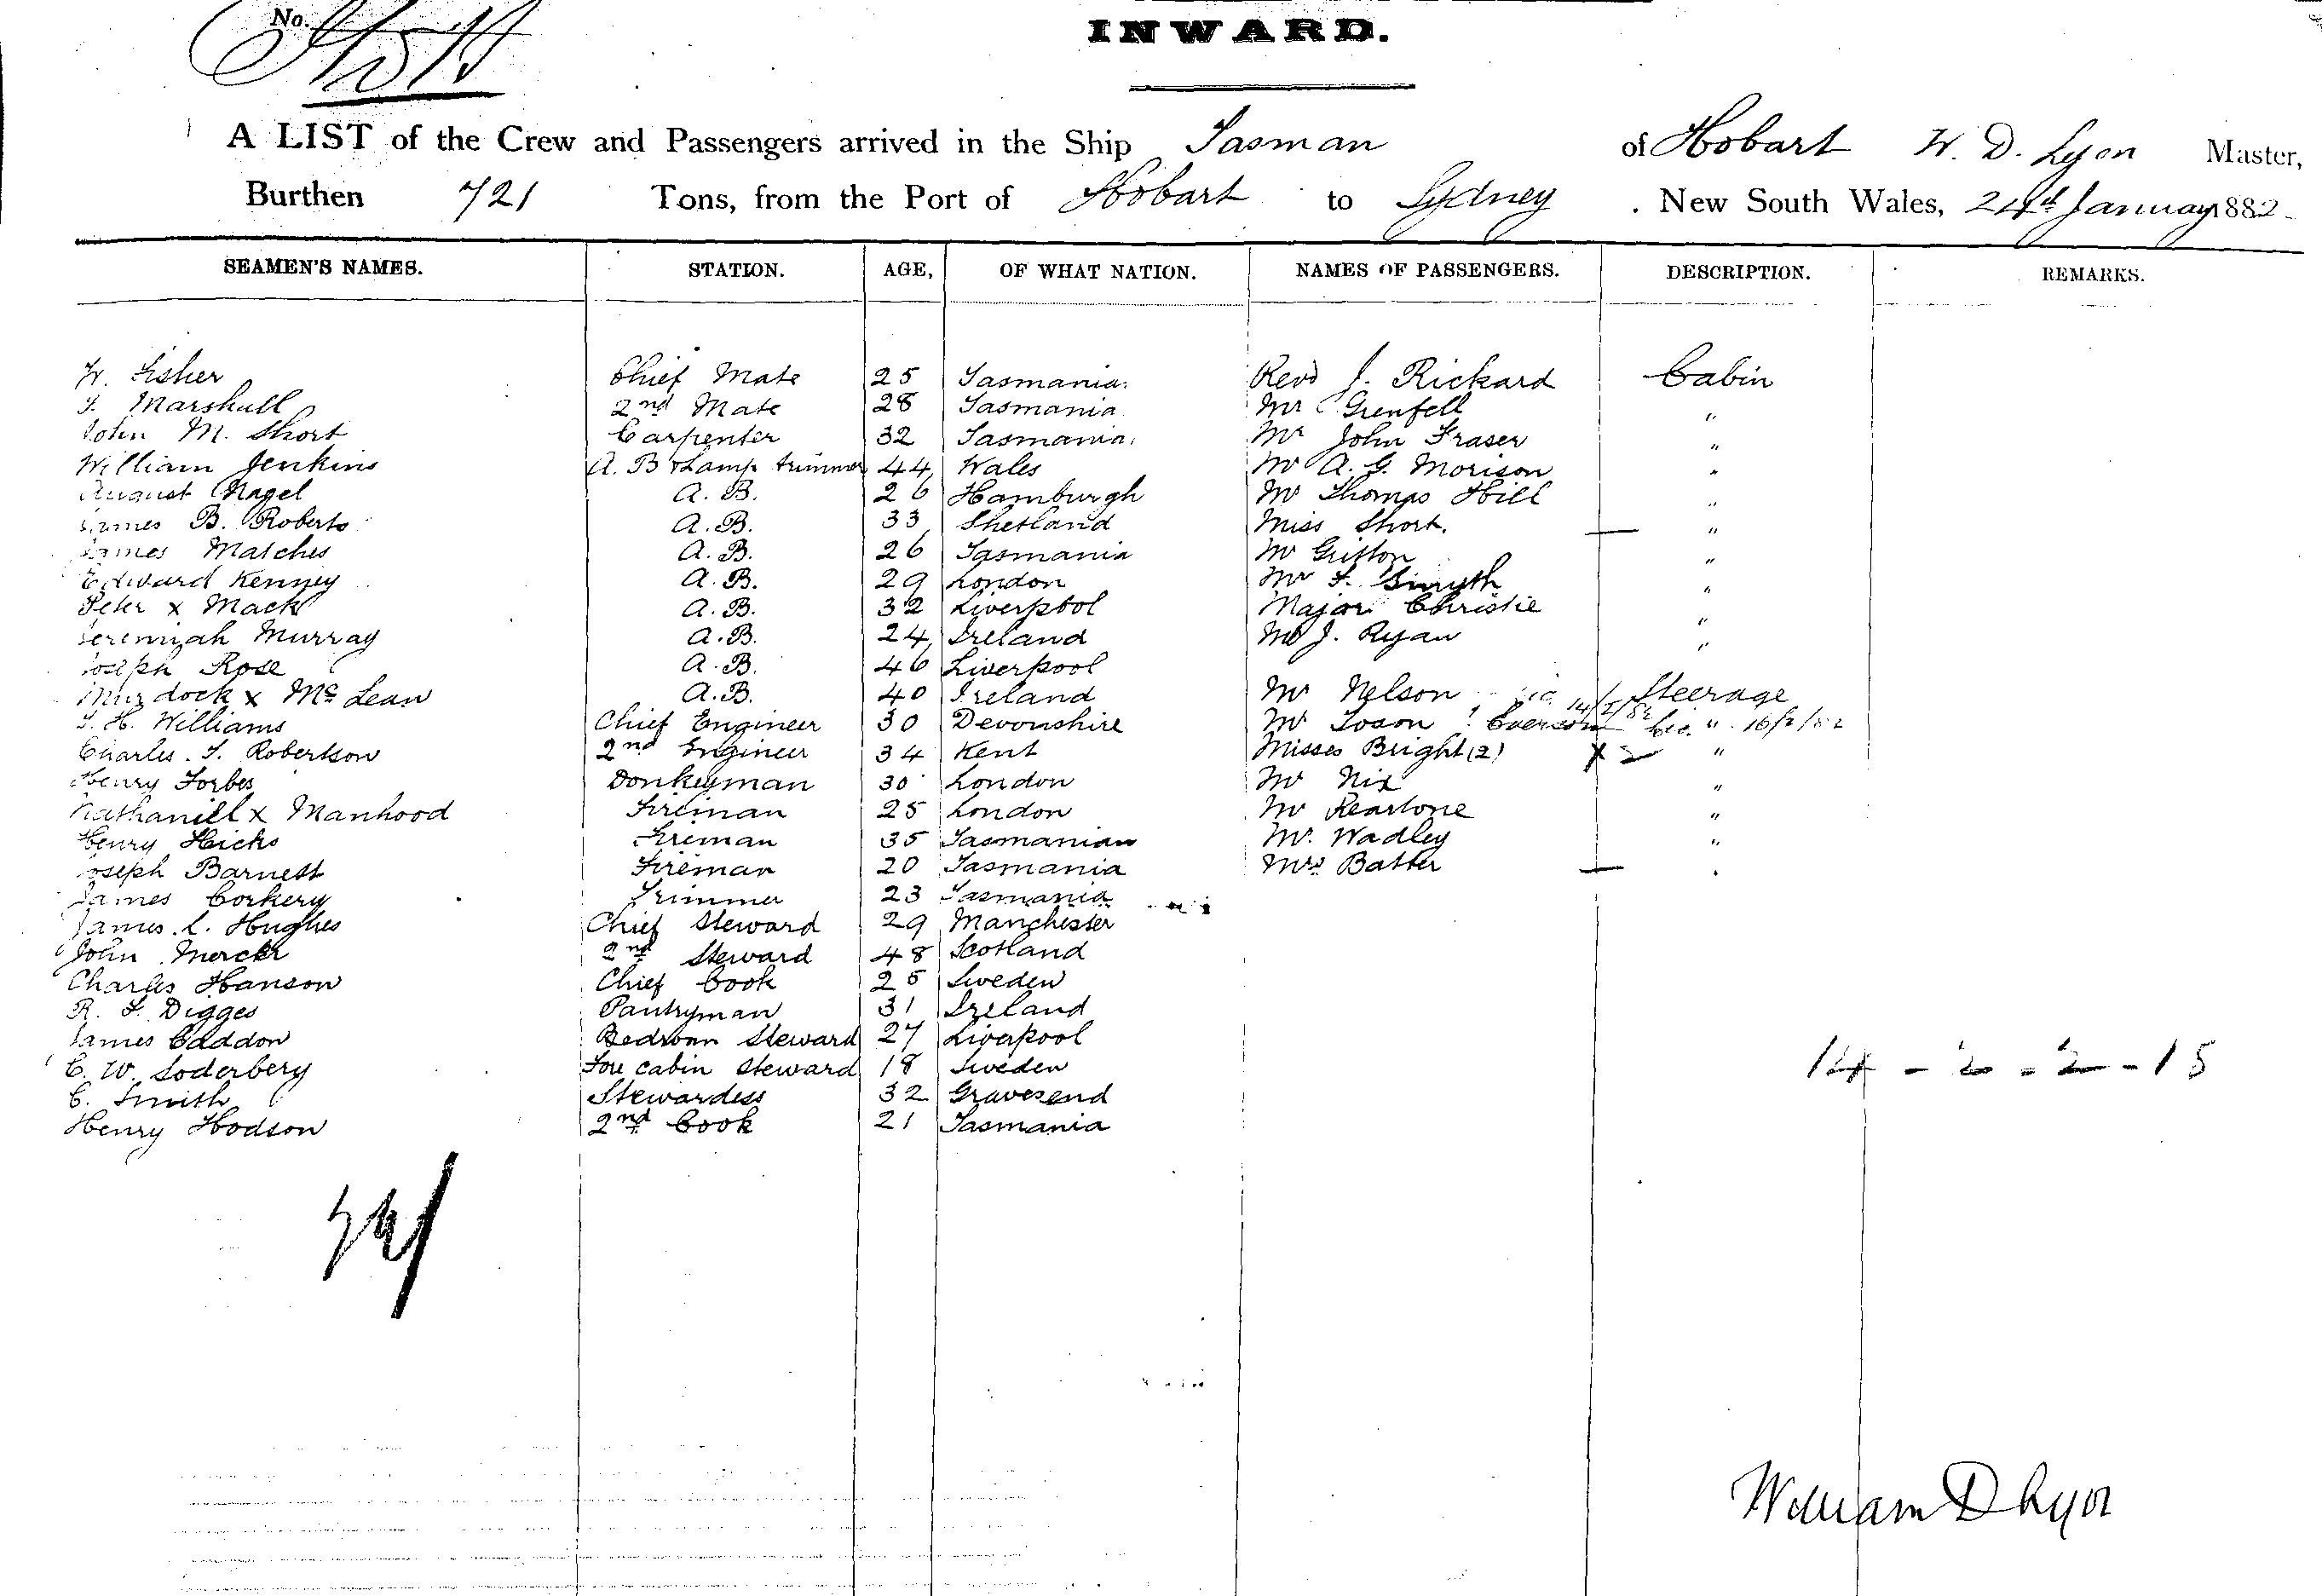 No.
INWARD.
A LIST of the Crew and Passengers arrived in the Ship Tasman of Hobart W. D. Lyon Master,
Burthen 721 Tons, from the Port of Hobart to Sydney . New South Wales, 24th January 1882
SEAMEN'S NAMES. STATION. AGE, OF WHAT NATION. NAMES OF PASSENGERS. DESCRIPTION. REMARKS.
W. Fisher Chief Mate 25 Tasmania. Revd J. Rickard Cabin
T. Marshall 2nd Mate 28 Tasmania Mr Grenfell "
John M. Short Carpenter 32 Tasmania. Mr John Fraser "
William Jenkins A. B & Lamp trimmer 44 Wales Mr A. G. Morison "
August Nagel A. B. 26 Hamburgh Mr Thomas Hill "
James B. Roberts A. B. 33 Shetland Miss Short. "
James Matches A. B. 26 Tasmania Mr Gritton "
Edward Kenney A. B. 29 London Mr F. Smyth "
Peter x Mack A. B. 32 Liverpool Major Christie "
Jeremiah Murray A. B. 24 Ireland Mr J. Ryan "
Joseph Rose A. B. 46 Liverpool
Murdock x Mc Lean A. B. 40 Ireland Mr Nelson 14/2/82 Steerage
T. H. Williams Chief Engineer 30 Devonshire Mr Toson " 16/2/82
Charles. T. Robertson 2nd Engineer 34 Kent Misses Bright (2) x 2 "
Henry Forbes Donkeyman 30 London Mr Nix "
Nathaniell x Manhood Fireman 25 London Mr "
Henry Hicks Fireman 35 Tasmanian Mr. Wadley "
Joseph Barnett Fireman 20 Tasmania Mrs Batter "
James Corkery Trimmer 23 Tasmania
James. L. Hughes Chief Steward 29 Manchester
John 2nd Steward 48 Scotland
Charles Hanson Chief Cook 25 Sweden
R. F. Digges Pantryman 31 Ireland
James Caddon Bedroom Steward 27 Liverpool
C. W. Soderberg Fore cabin Steward 18 Sweden
C. Smith Stewardess 32 Gravesend
Henry Hodson 2nd Cook 21 Tasmania
14 - 2 - 2 - 15
William D Lyon